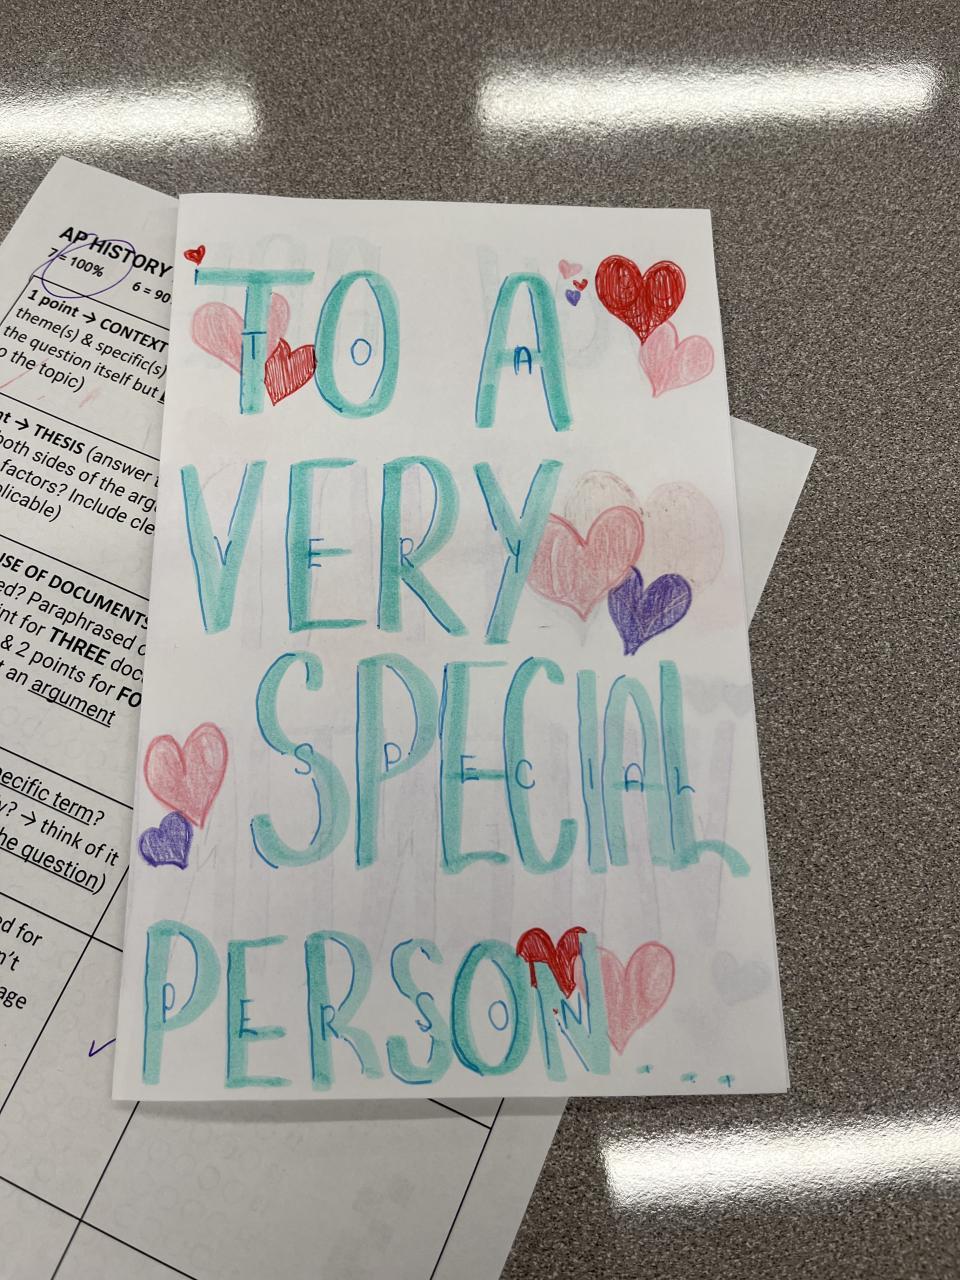 TO A
VERY
SPECIAL
PERSON...
AP HISTORY
7 = 100%
6 = 90
1 point → CONTEXT
theme(s) & specific(s)
the question itself but
o the topic)
nt → THESIS (answer t
both sides of the arg
factors? Include cle
plicable)
USE OF DOCUMENTS
ed? Paraphrased o
int for THREE doc
& 2 points for FO
t an argument
pecific term?
y? → think of it
he question)
ed for
n't
age